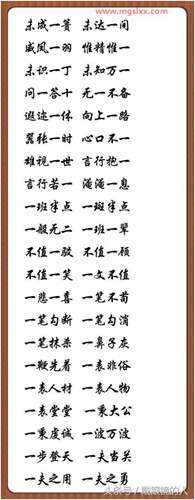 www.mgslxx.com
未成一篑 未达一间
威凤一羽 惟精惟一
未识一丁 未知万一
问一答十 无一不备
遐迩一体 向上一路
嚣张一时 心口不一
雄视一世 言行抱一
言行若一 淹淹一息
一班半点 一斑半点
一般无二 一班一辈
不值一驳 不值一顾
不值一笑 一文不值
一悲一喜 一笔不苟
一笔勾断 一笔勾消
一笔抹杀 一鼻子灰
一鞭先着 一表非俗
一表人材 一表人物
一表堂堂 一秉大公
一秉虔诚 一波万波
一步登天 一夫当关
一夫之用 一夫之勇